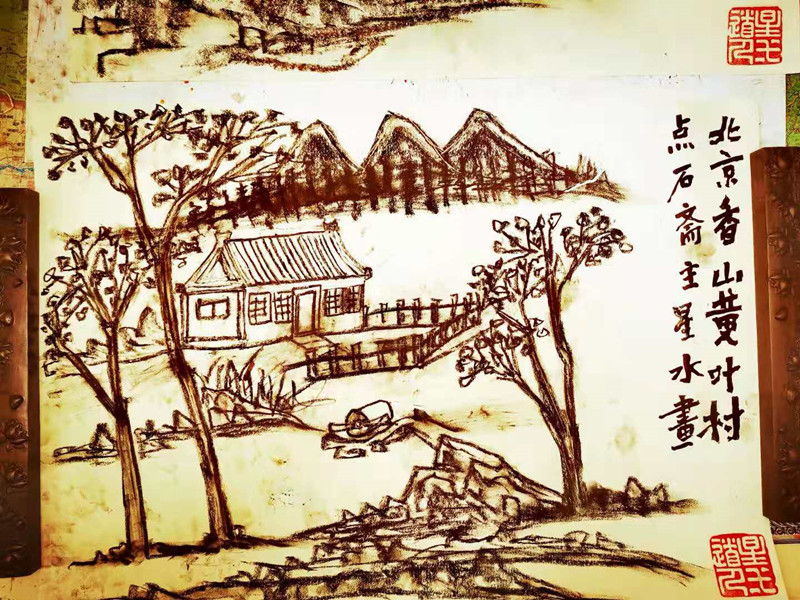 北京香山黄叶村
点石斋主星水畫